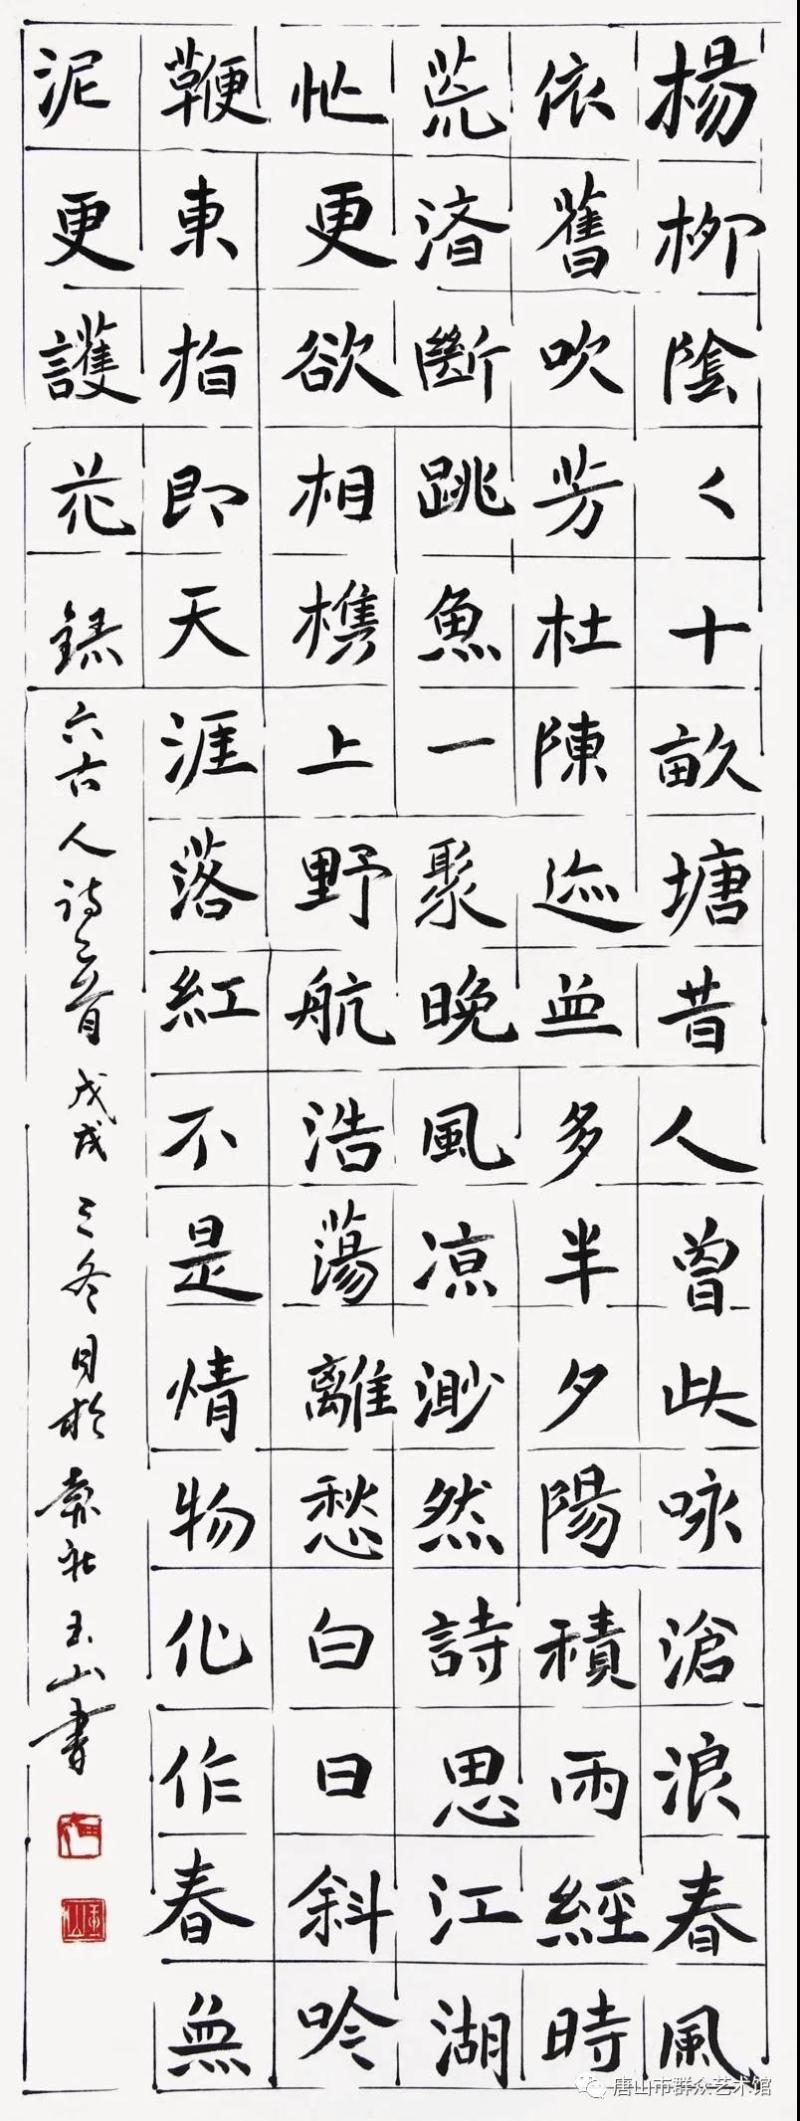 楊柳陰〻十畝塘昔人曾此咏滄浪春風
依舊吹芳杜陳迹無多半夕陽積雨經時
荒渚斷跳魚一聚晚風凉渺然詩思江湖
忙更欲相攜上野航浩蕩離愁白日斜吟
鞭東指即天涯落紅不是情物化作春無
泥更護花錄六古人诗二首戊戌之冬月於社玉山書
唐山市群众艺术馆